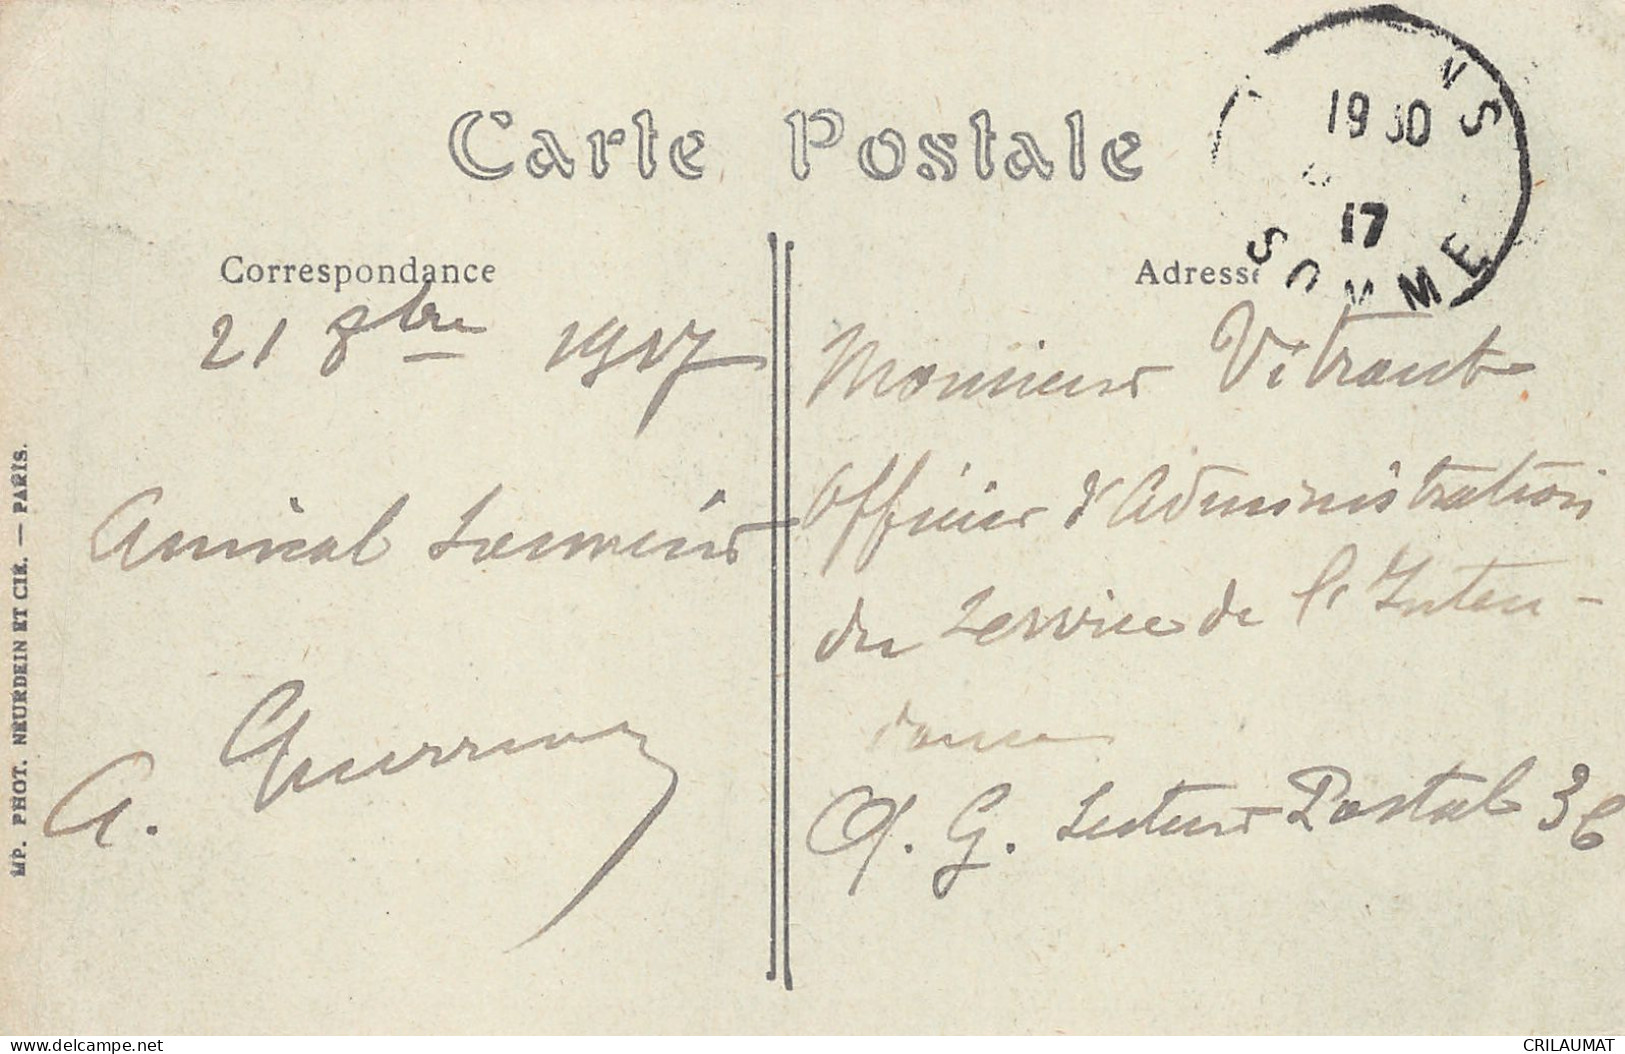 Carte Postale
NS
19 30
17
SOMME
Correspondance
21 8bre 1917
Amical Souvenir
A.
Adresse
Monsieur Vitrant
Officier d'Administration
du Service de l'Inten-
dance
Q. G. Secteur Postal 36
IMP. PHOT. NEURDEIN ET CIE. — PARIS.
CRILAUMAT
delcampe.net